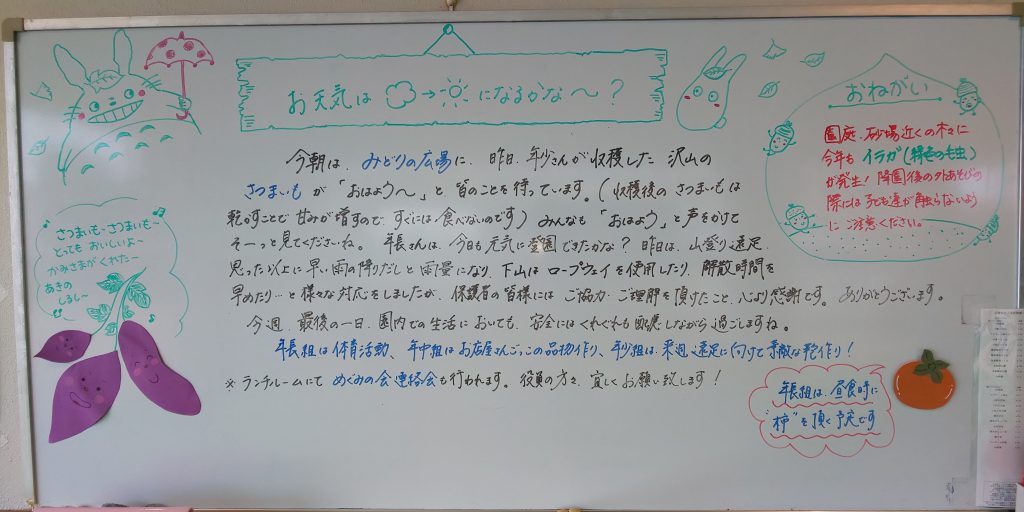 お天気は→になるかな〜？
今朝は、みどりの広場に、昨日、年少さんが収穫した沢山の
さつまいもが「おはよう〜」と皆のことを待っています。（収穫後のさつまいもは
乾かすことで甘みが増すので、すぐには食べないのです）みんなも「おはよう」と声をかけて
そーっと見てくださいね。年長さんは、今日も元気に登園できたかな？昨日は、山登り遠足、
思った以上に早い雨の降りだしと雨量になり、下山はロープウェイを使用したり、解散時間を
早めたり…と様々な対応をしましたが、保護者の皆様にはご協力・ご理解を頂けたこと、心より感謝です。ありがとうございます。
今週、最後の一日、園内での生活においても、安全にはくれぐれも配慮しながら過ごしますね。
年長組は体育活動、年中組はお店屋さんごっこの品物作り、年少組は、来週、遠足に向けて素敵な製作り！
※ランチルームにてめぐみの会連絡会も行われます。役員の方々、宜しくお願い致します！
おねがい
園庭、砂場近くの木々に
今年もイラガ（緑色の毛虫）
が発生！降園後の外あそびの
際には子ども達が触らないよう
にご注意ください。
さつまいも〜さつまいも〜
とってもおいしいよ〜
かみさまがくれた〜
あきの
しるし〜
年長組は、昼食時に
"柿"を頂く予定です